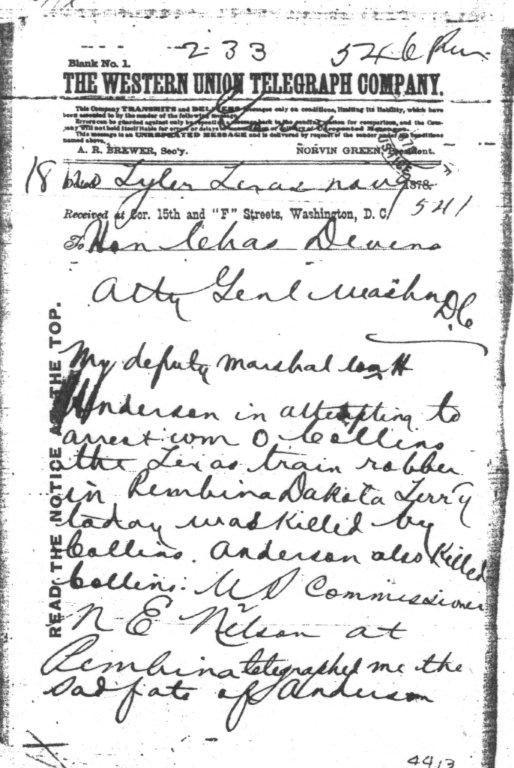 233 546 Pm
Blank No. 1.
THE WESTERN UNION TELEGRAPH COMPANY.
This Company TRANSMITS and DELIVERS messages only on conditions, limiting its liability, which have
been assented to by the sender of the following message.
Errors can be guarded against only by repeating a message back to the sending station for comparison, and the Com-
pany will not hold itself liable for errors or delays
This message is an UNREPEATED MESSAGE and is delivered by request of the sender under the conditions
named above.
A. R. BREWER, Sec'y. NORVIN GREEN, President.
18 Dated Tyler Texas Nov 1878.
Received at Cor. 15th and "F" Streets, Washington, D. C. 541
To Hon Chas Devens
Atty Genl Washn D.C
My deputy marshal
Anderson in attempting to
arrest Wm O Collins
the Texas train robber
in Pembina Dakota Terry
today was killed by
Collins. Anderson also killed
Collins. U S Commissioner
N E Nelson at
Pembina telegraphed me the
sad fate of Anderson
READ THE NOTICE AT THE TOP.
4413